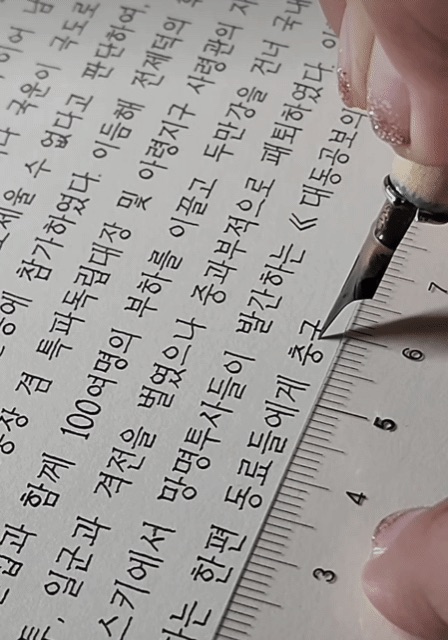 국운이 극도로
세울 수 없다고 판단하여,
에 참가하였다. 이듬해 전제덕의
장 겸 특파독립대장 및 아령지구 사령관의
과 함께 100여명의 부하를 이끌고 두만강을 건너 국내
일군과 격전을 벌였으나 중과부적으로 패퇴하였다.
스키에서 망명투사들이 발간하는 《 대동공보의
는 한편 동료들에게 충구
3 4 5 6 7